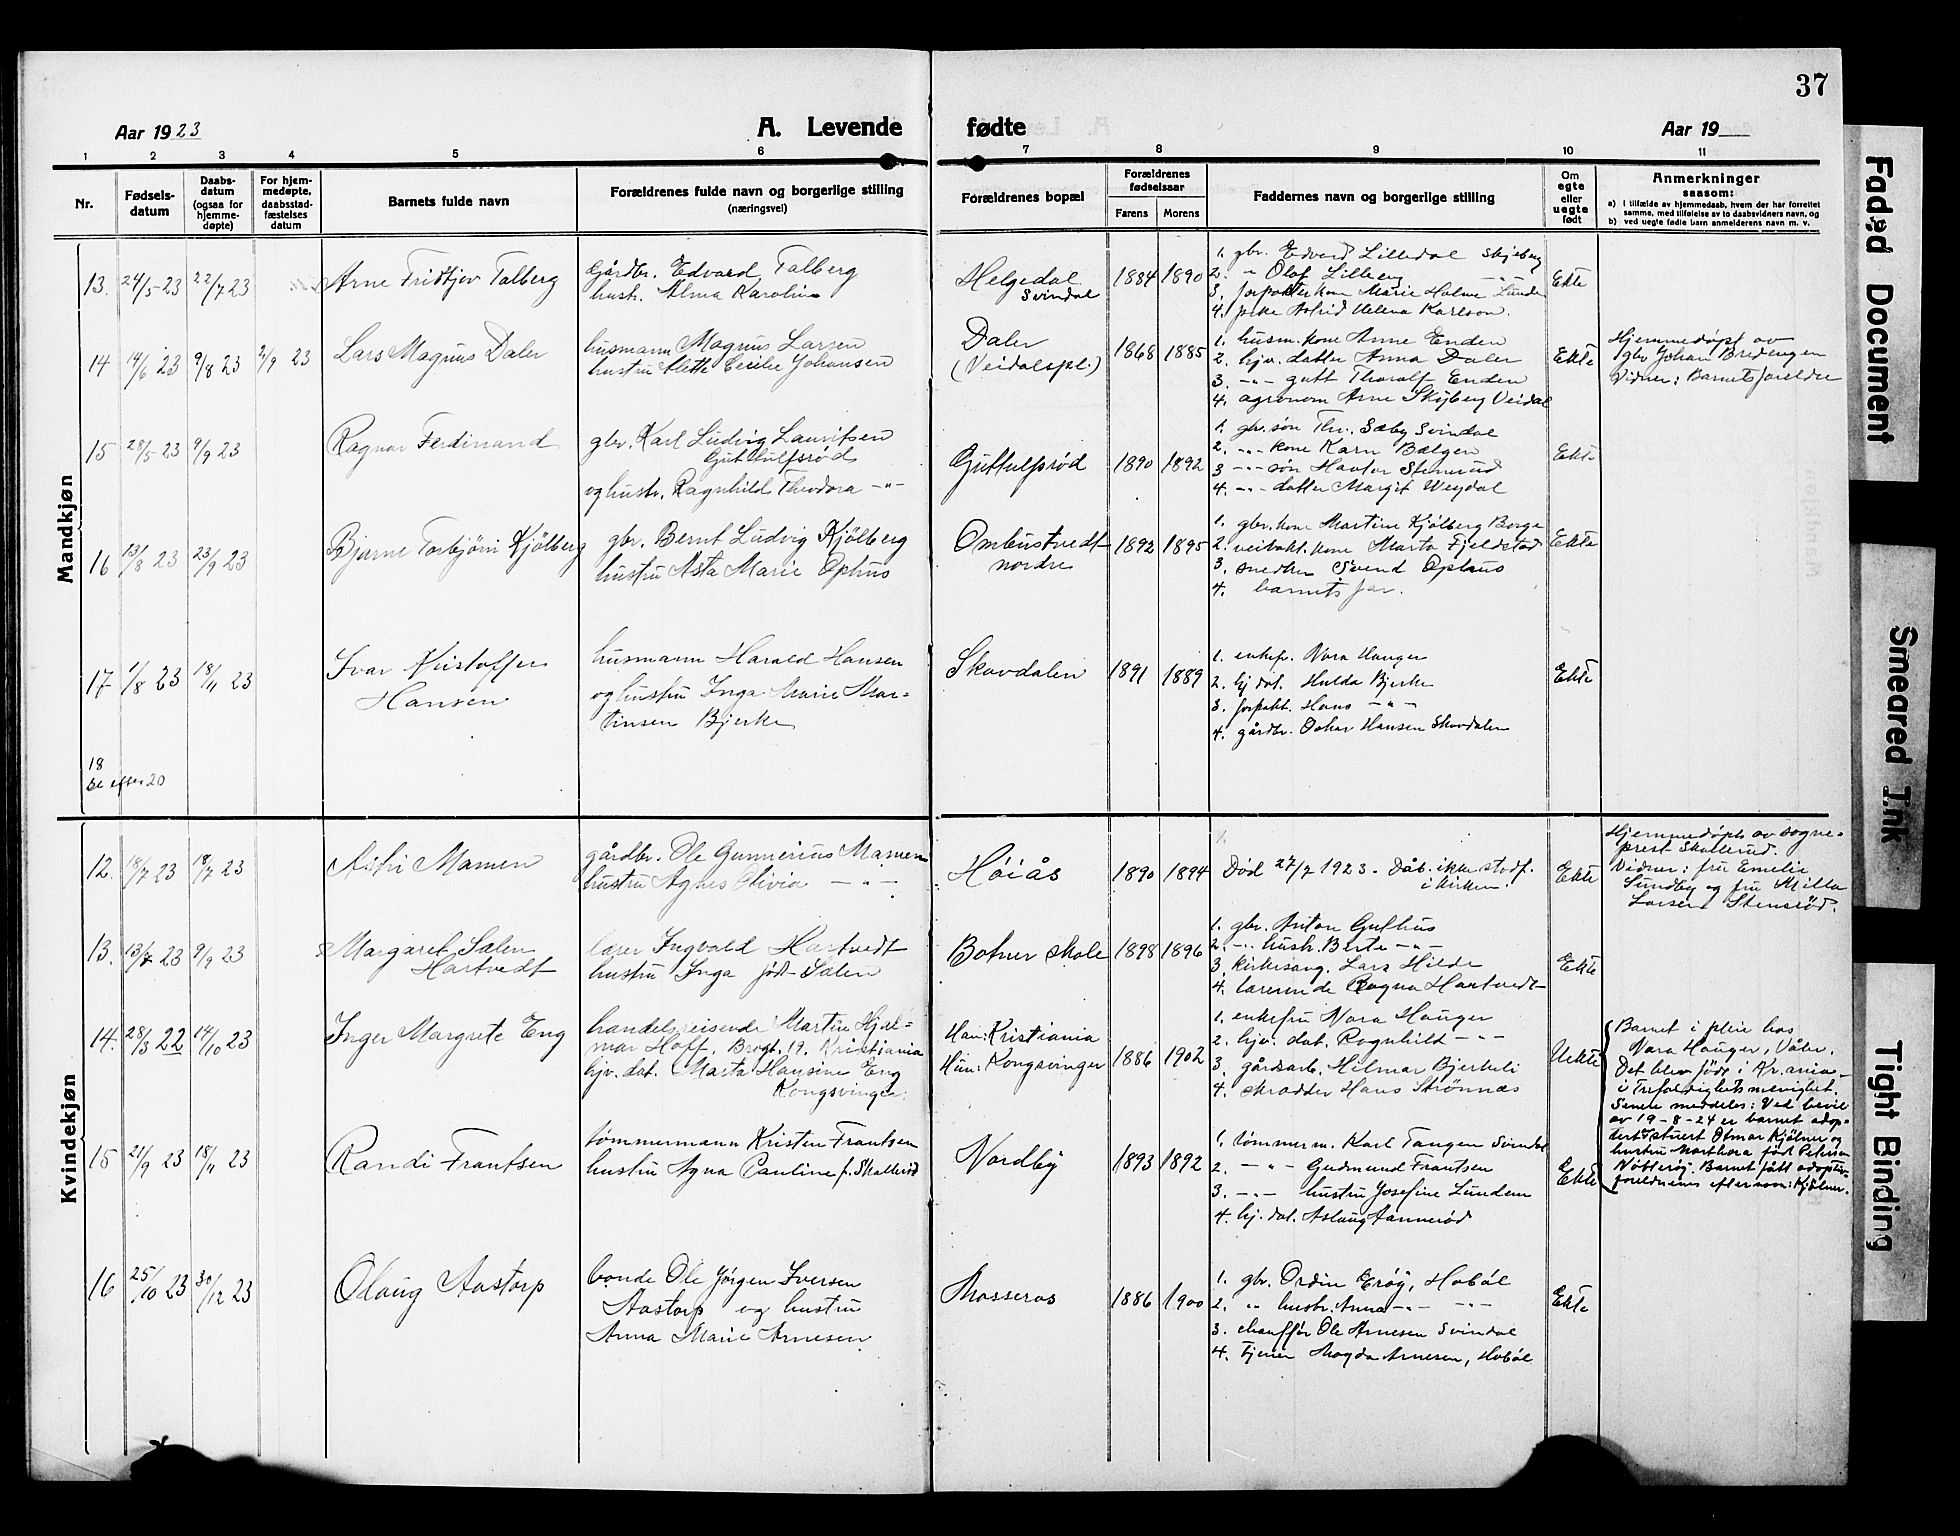 37
Aar 1923
A. Levende
fødte
Aar 19
1 2 3 4 5 6 7 8 9 10 11
Nr.
Fødsels-
datum
Daabs-
datum
(ogsaa for
hjemme-
døpte)
For hjem-
medøpte,
daabsstad-
fæstelses
datum
Barnets fulde navn
Forældrenes fulde navn og borgerlige stilling
(næringsvei)
Forældrenes bopæl
Forældrenes
fødselsaar
Farens Morens
Faddernes navn og borgerlige stilling
Om
egte
eller
uegte
født
Anmerkninger
saasom:
a) i tilfælde av hjemmedaab, hvem der har forrettet
samme, med tilføielse av to daabsvidners navn, og
b) ved uegte fødte barn anmelderens navn m. v.
Mandkjøn
13. 24/5 23 22/7 23
Arne Fridtjov Talberg
Gårdbr. Edvard Talberg
hustr. Alma Karoline
Helgedal
Svindal
1884 1890
1. gbr. Edvard Lilledal Skjeberg
2. " Olaf Lilleeng -"-
3. forpakter kone Marie Holme Lunde
4. pike Astrid Helena Karlson.
Ekte
14 14/6 23 9/8 23 2/9 23
Lars Magnus Daler
husmann Magnus Larsen
hustru Alette Cecilie Johansen
Daler
(Veidalspl.)
1868 1885
1. husm. kone Anne Enden
2. hjv. datter Anna Daler
3. -"- gutt Thoralf Enden
4. agronom Arne Skjberg Veidal
Ekte
Hjemmedøpt av
gbr Johan Bredengen
Vidner: Barnets foreldre
15 28/5 23 9/9 23
Ragnar Ferdinand
gbr. Karl Ludvig Lauritsen
Guthulfsrød
og hustr. Ragnhild Theodora -"-
Guttulfsrød
1890 1892
1. gbr. søn Thr. Sæby Svindal
2. -"- kone Karn Bælgen
3 -"- søn Havtor Stenerud
4. -"- datter Margit Weydal
Ekte
16 13/8 23 23/9 23
Bjarne Torbjørn Kjølberg
gbr. Bernt Ludvig Kjølberg
hustru Asta Marie Ophus
Ombustvedt
nordre
1892 1895
1. gbr. kone Martine Kjølberg Borge
2. veivokt. kone Marta Fjeldstad
3. snedker Svend Ophus
4. barnets far.
Ekte
17 1/8 23 18/11 23
Ivar Kristoffer
Hansen
husmann Harald Hansen
og hustru Inga Marie Mar-
tinsen Bjerke
Skovdalen
1891 1889
1. enkefr. Nora Hauger
2. hj dat. Hulda Bjerke
3. forpakt. Hans -"-
4. gårdbr. Oskar Hansen Skovdalen
Ekte
18
se efter 20
Kvindekjøn
12. 18/7 23 18/7 23
Astri Mamen
gårdbr. Ole Gunnerius Mamen
hustru Agnes Olivia -"-
Høiås
1890 1894
Død 27/7 1923. Dåb. ikke stadf.
i kirken.
Ekte
Hjemmedøpt av sogne-
prest Skollerud.
Vidner: fru Emelie
Sundby og fru Milla
Larsen Stensrød.
13. 13/7 23 9/9 23
Margaret Salen
Hartvedt
lærer Ingvald Hartvedt
hustru Inga født Salen
Botner skole
1898 1896
1. gbr. Anton Guthus
2. -"- hustr. Berte -"-
3. kirkesang. Lars Hilde
4. lærerinde Ragna Hartvedt
Ekte
14. 28/3 22 14/10 23
Inger Margrete Eng
handelsreisende Martin Hjal-
mar Hoff. Brogt. 19. Kristiania
hjv. dat. Marta Hansine Eng
Kongsvinger.
Han: Kristiania
Hun: Kongsvinger
1886 1902
1. enkefru Nora Hauger
2. hjv. dat. Ragnhild -"-
3. gårdsarb. Hilmar Bjerkeli
4. skrædder Hans Strønnæs
Uekte
Barnet i pleie hos
Nora Hauger, Våler.
Det blev født i Kr.ania
i Trefoldighets menighet.
Senere meddeles: Ved bevil
av 19-8-24 er barnet adop-
tert Otmar Kjølner og
hustru Marthora født Petersen
Nøtterøy. Barnet fått adoptiv-
foreldrenes efternavn: Kjølner.
15 21/9 23 18/11 23
Randi Frantsen
tømmermann Kristen Frantsen
hustru Agna Pauline f. Skallerud
Nordby
1893 1892
1. tømmerm. Karl Tangen Svindal
2. -"- Gudmund Frantsen
3. -"- hustru Josefine Lundem
4. hj. dat. Aslaug Aannerød
Ekte
16 25/10 23 30/12 23
Olaug Aastorp
bonde Ole Jørgen Iversen
Aastorp og hustru
Anna Marie Arnesen.
Mosseros
1886 1900
1. gbr. Ordin Erøy, Hobøl
2. " hustr. Anna -"- -"-
3. chauffør Ole Arnesen Svindal
4. tjener Magda Arnesen, Hobøl
Ekte
Faded Document
Smeared Ink
Tight Binding